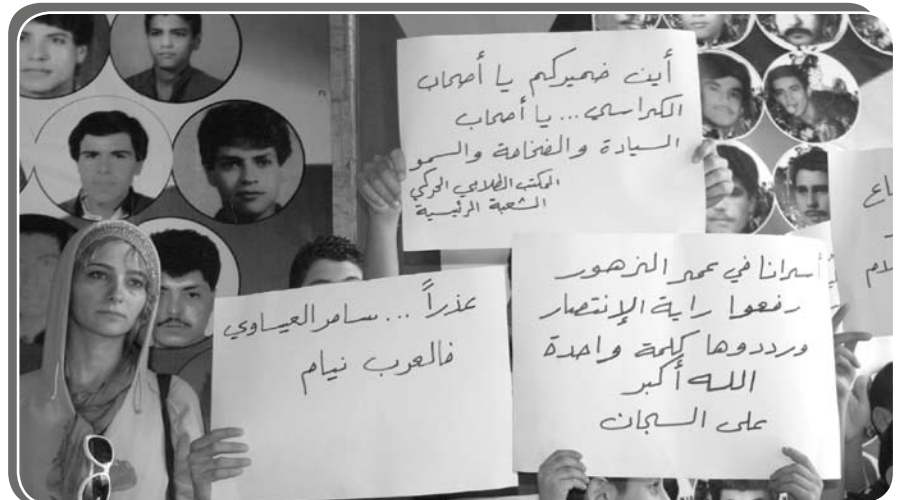 أين ضميركم يا أصحاب
الكراسي... يا أصحاب
السيادة والفخامة والسمو
المكتب الطلابي الحركي
الشعبة الرئيسية
عذراً ... سامر العيساوي
فالعرب نيام
أسرانا في عمر الزهور
رفعوا راية الإنتصار
ورددوها كلمة واحدة
الله أكبر
على السجان